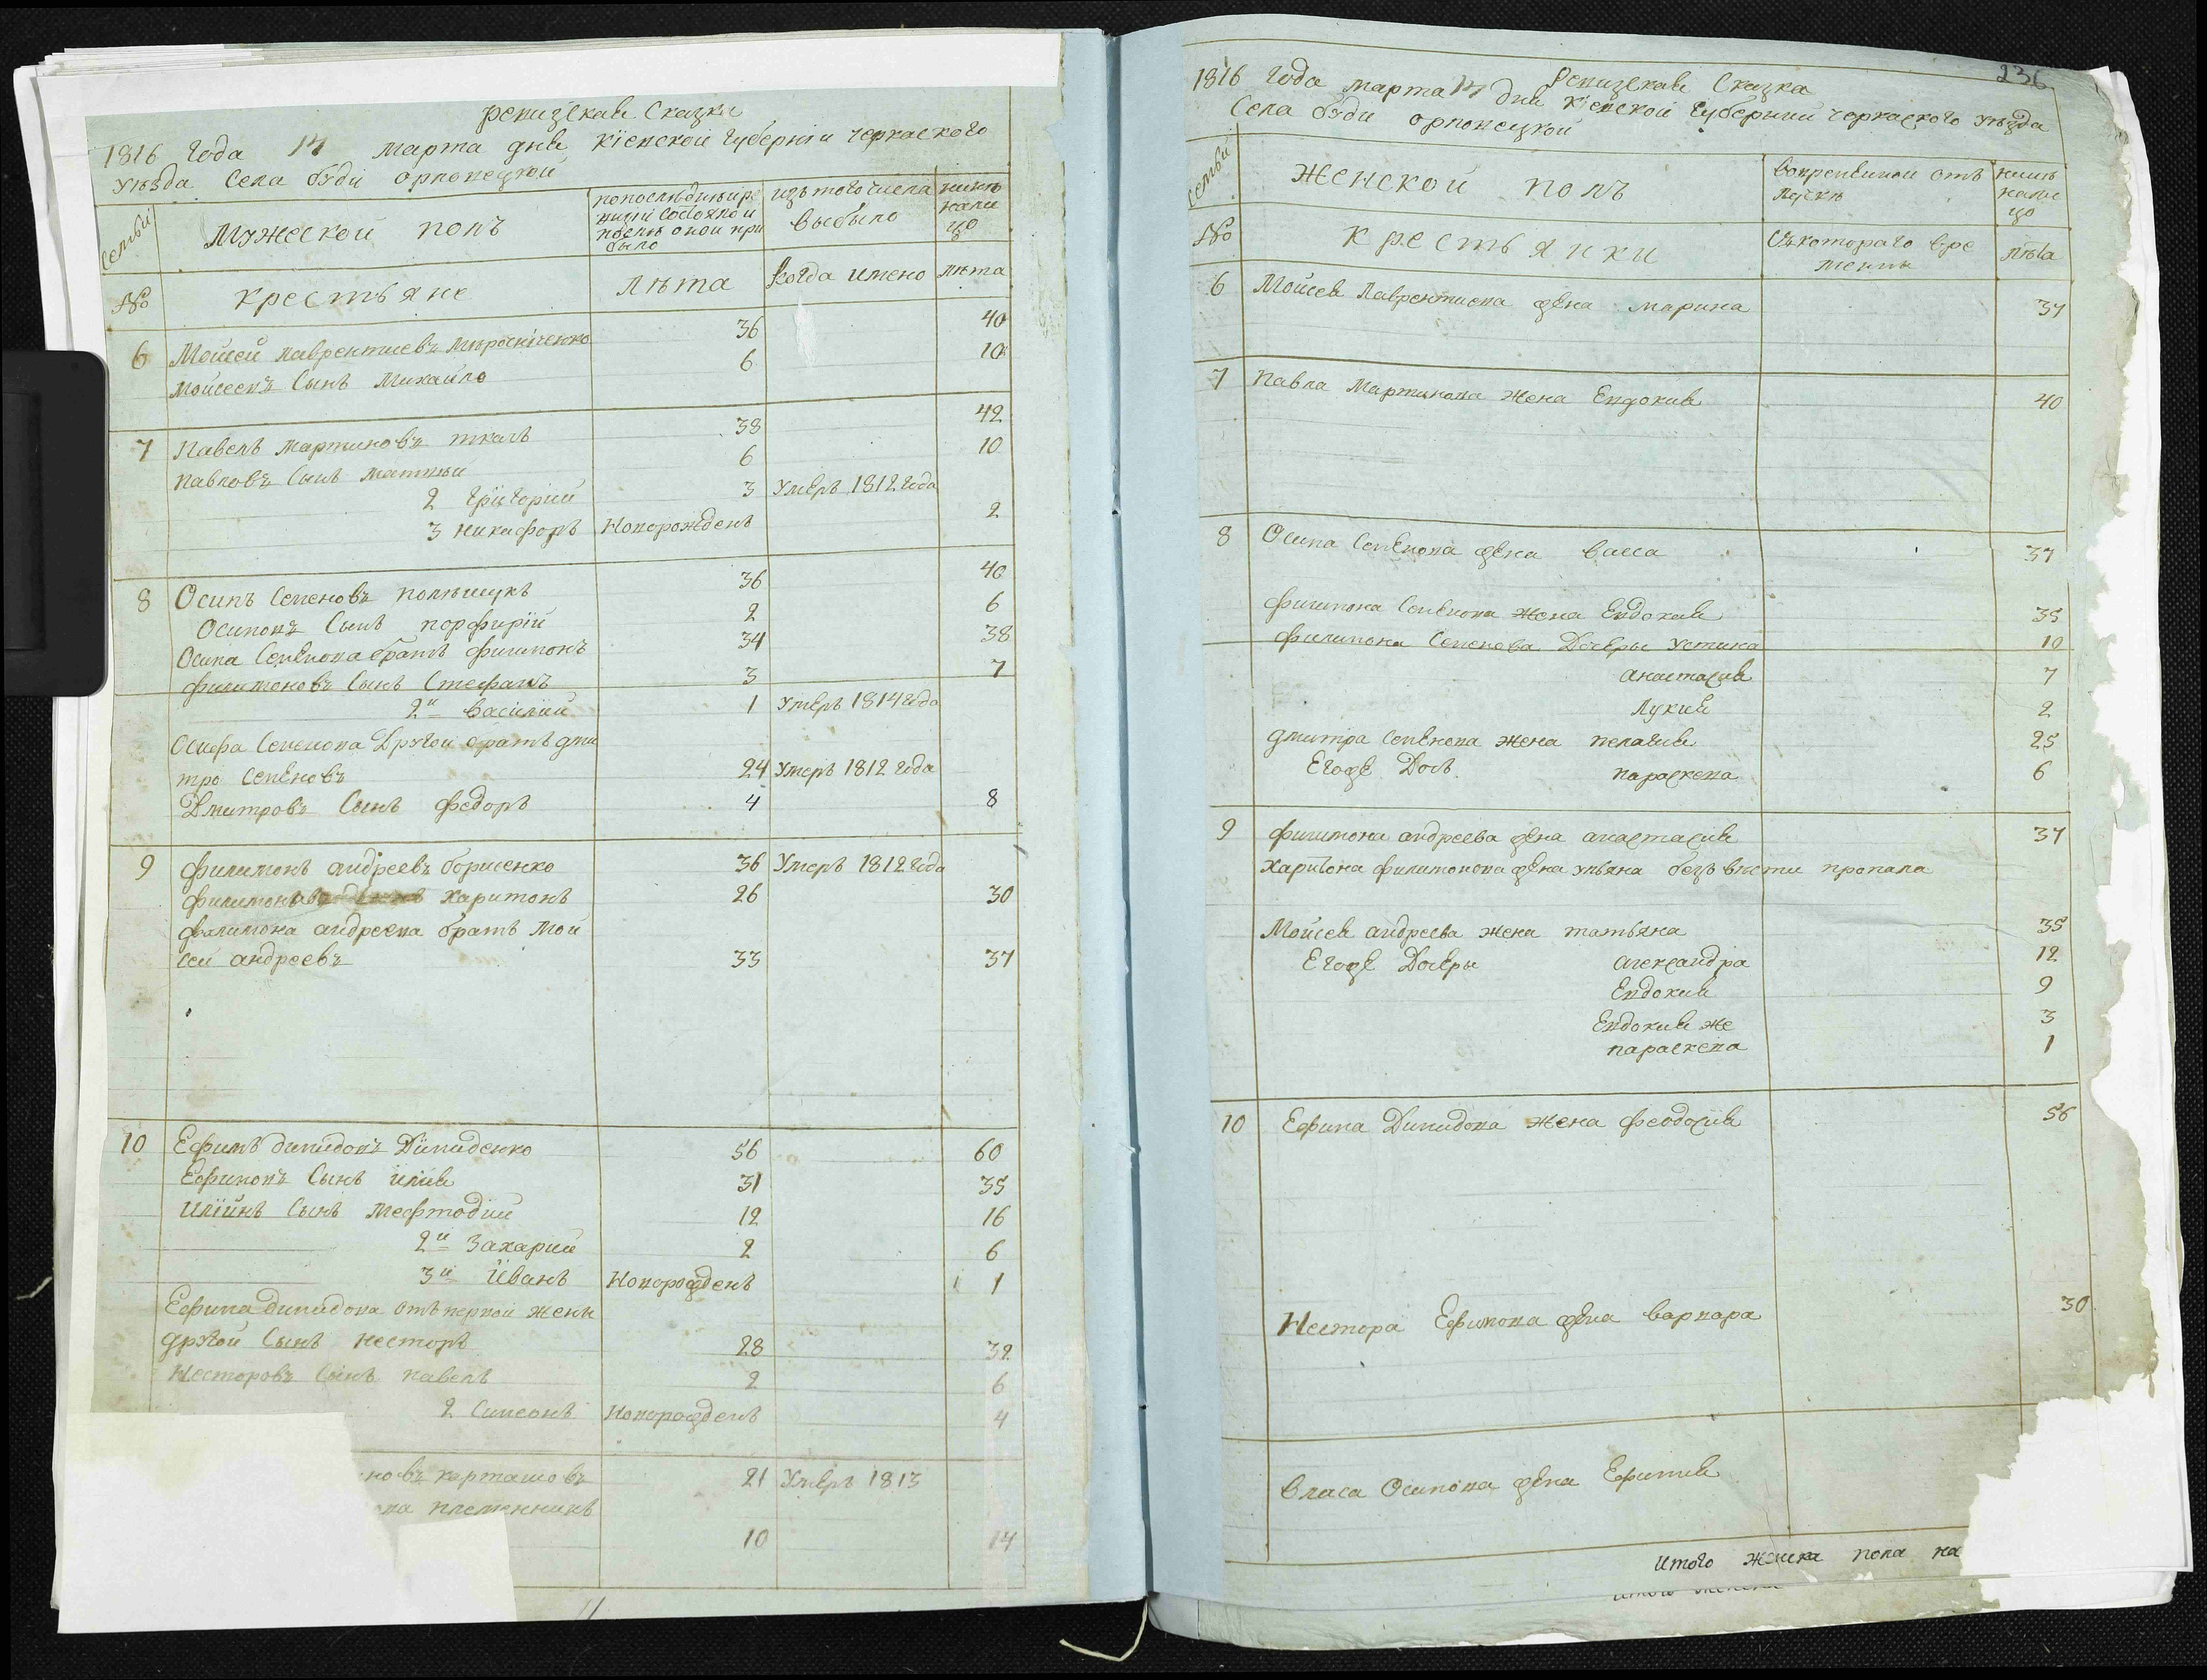 ревизская Сказка
1816 года 14 марта дня Кіевской губерніи Черкаского
уезда Села буди орловецкой
Семьи
Мужеской полъ
по последней ре
визіи состояло и
после оной при
было
изъ того числа
выбыло
ныне
нали
цо
№
крестьяне
лета
когда имено
лета
6 Мойсей лаврентиевъ мирошніченко 36 40
Мойсеевъ Сынъ Михайло 6 10
7 Павелъ мартиновъ ткачь 38 42
павловъ Сынъ матвеи 6 10
2 Григорий 3 Умеръ 1812 года
3 никифоръ Новорожденъ 2
8 Осипъ Семеновъ полещукъ 36 40
Осиповъ Сынъ порфирій 2 6
Осипа Семенова братъ филимонъ 34 38
филимоновъ Сынъ Стефанъ 3 7
2й василий 1 Умеръ 1814 года
Осифа Семенова Другой братъ дми
тро Семеновъ 24 Умеръ 1812 года
Дмитровъ Сынъ федоръ 4 8
9 филимонъ андреевъ борисенко 36 Умеръ 1812 года
филимоновъ Харитонъ 26 30
филимона андреева братъ мои
сеи андреевъ 33 37
10 Ефимъ димидовъ Димиденко 56 60
Ефимовъ Сынъ илия 31 35
Илійнъ Сынъ мефтодий 12 16
2й Захарий 2 6
3й Иванъ Новорожденъ 1
Ефима димидова отъ первой жены
другой Сынъ несторъ 28 32
Несторовъ Сынъ павелъ 2 6
2 Симеонъ Новорожденъ 4
новъ карташовъ 21 Умеръ 1813
ова племенникъ
10 14
236
Ревизская Сказка
1816 года марта 14 дня Кіевской губернии черкаского уезда
Села буди орловецкой
Семьи
Женской полъ
во временной отъ
лучке
ныне
нали
цо
№
крестьянки
Съ котораго вре
мени
лета
6 Мойсея Лаврентиева жена марина 37
7 Павла Мартинова жена Евдокия 40
8 Осипа Семенова жена васса 37
филимона Семенова жена Евдокия 35
филимона Семенова Дочеры Устина 10
анастасия 7
Лукия 2
дмитра Семенова жена пелагия 25
Егоже Дочь параскева 6
9 филимона андреева жена анастасия 37
Харитона филимонова жена ульяна безъ вести пропала
Мойсея андреева жена татьяна 35
Егоже Дочеры александра 12
Евдокия 9
Евдокия же 3
параскева 1
10 Ефима Димидова жена феодосия 56
Нестора Ефимова жена варвара 30
Власа Осипова жена Ефимия
Итого женска пола на